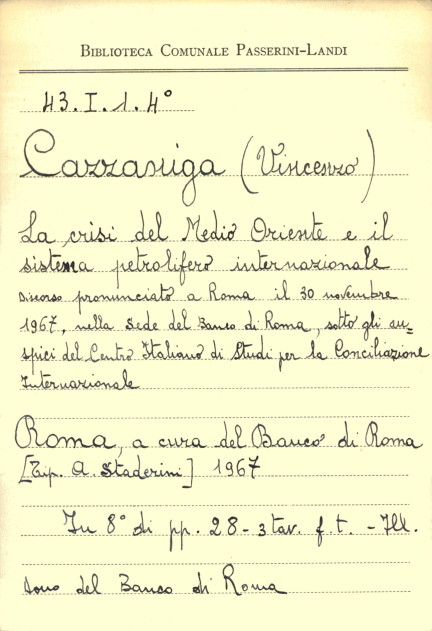 BIBLIOTECA COMUNALE PASSERINI-LANDI
43.I.1.4°
Cazzaniga (Vincenzo)
La crisi del Medio Oriente e il
sistema petrolifero internazionale
Discorso pronunciato a Roma il 30 novembre
1967, nella Sede del Banco di Roma, sotto gli au=
spici del Centro Italiano di Studi per la Conciliazione
Internazionale
Roma, a cura del Banco di Roma
[Tip. A. Staderini] 1967
In 8° di pp. 28 - 3 tav. f.t. - Ill.
dono del Banco di Roma